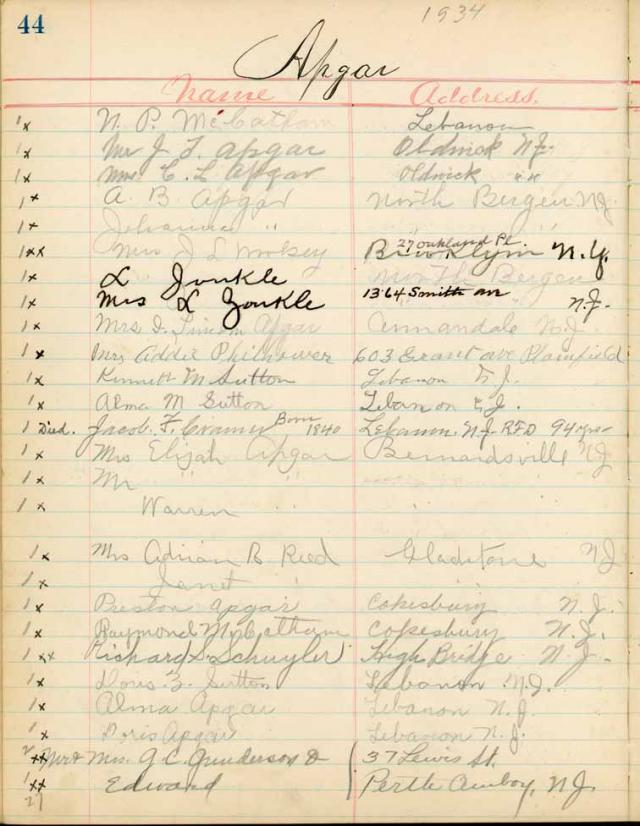 44 1934
Apgar
Name Address.
1x N. P. McCatharn Lebanon
1x Mr J. L. Apgar Oldwick N.J.
1x Mrs C. L. Apgar Oldwick " "
1x A. B. Apgar North Bergen N.J.
1x Johanna " " "
1xx Mrs J L 27 Oakland Pl. Brooklyn N.Y.
1x L Zonkle North Bergen
1x Mrs L Zonkle 1364 Smith ave N.J.
1x Mrs. Apgar Annandale N.J.
1x Mrs Addie Philhower 603 Grant ave Plainfield
1x Kenneth M Sutton Lebanon N.J.
1x Alma M Sutton Lebanon N.J.
1 Died. Jacob. F. Cramer Born 1840 Lebanon. N.J. RFD 94 yrs
1x Mrs Elijah Apgar Bernardsville N.J.
1x Mr " "
1x Warren "
1x Mrs Adrian B. Reed Gladstone NJ
1x Janet "
1x Preston Apgar Cokesbury N.J.
1x Raymond McCatharn Cokesbury N.J.
1xx Richard S Schuyler High Bridge N.J.
1x Doris Z. Sutton Lebanon N.J.
1x Alma Apgar Lebanon N.J.
1x Doris Apgar Lebanon N.J.
2xx Mr & Mrs. G. C. Gunderson & 37 Lewis St.
1xx Edward Perth Amboy, N.J.
27